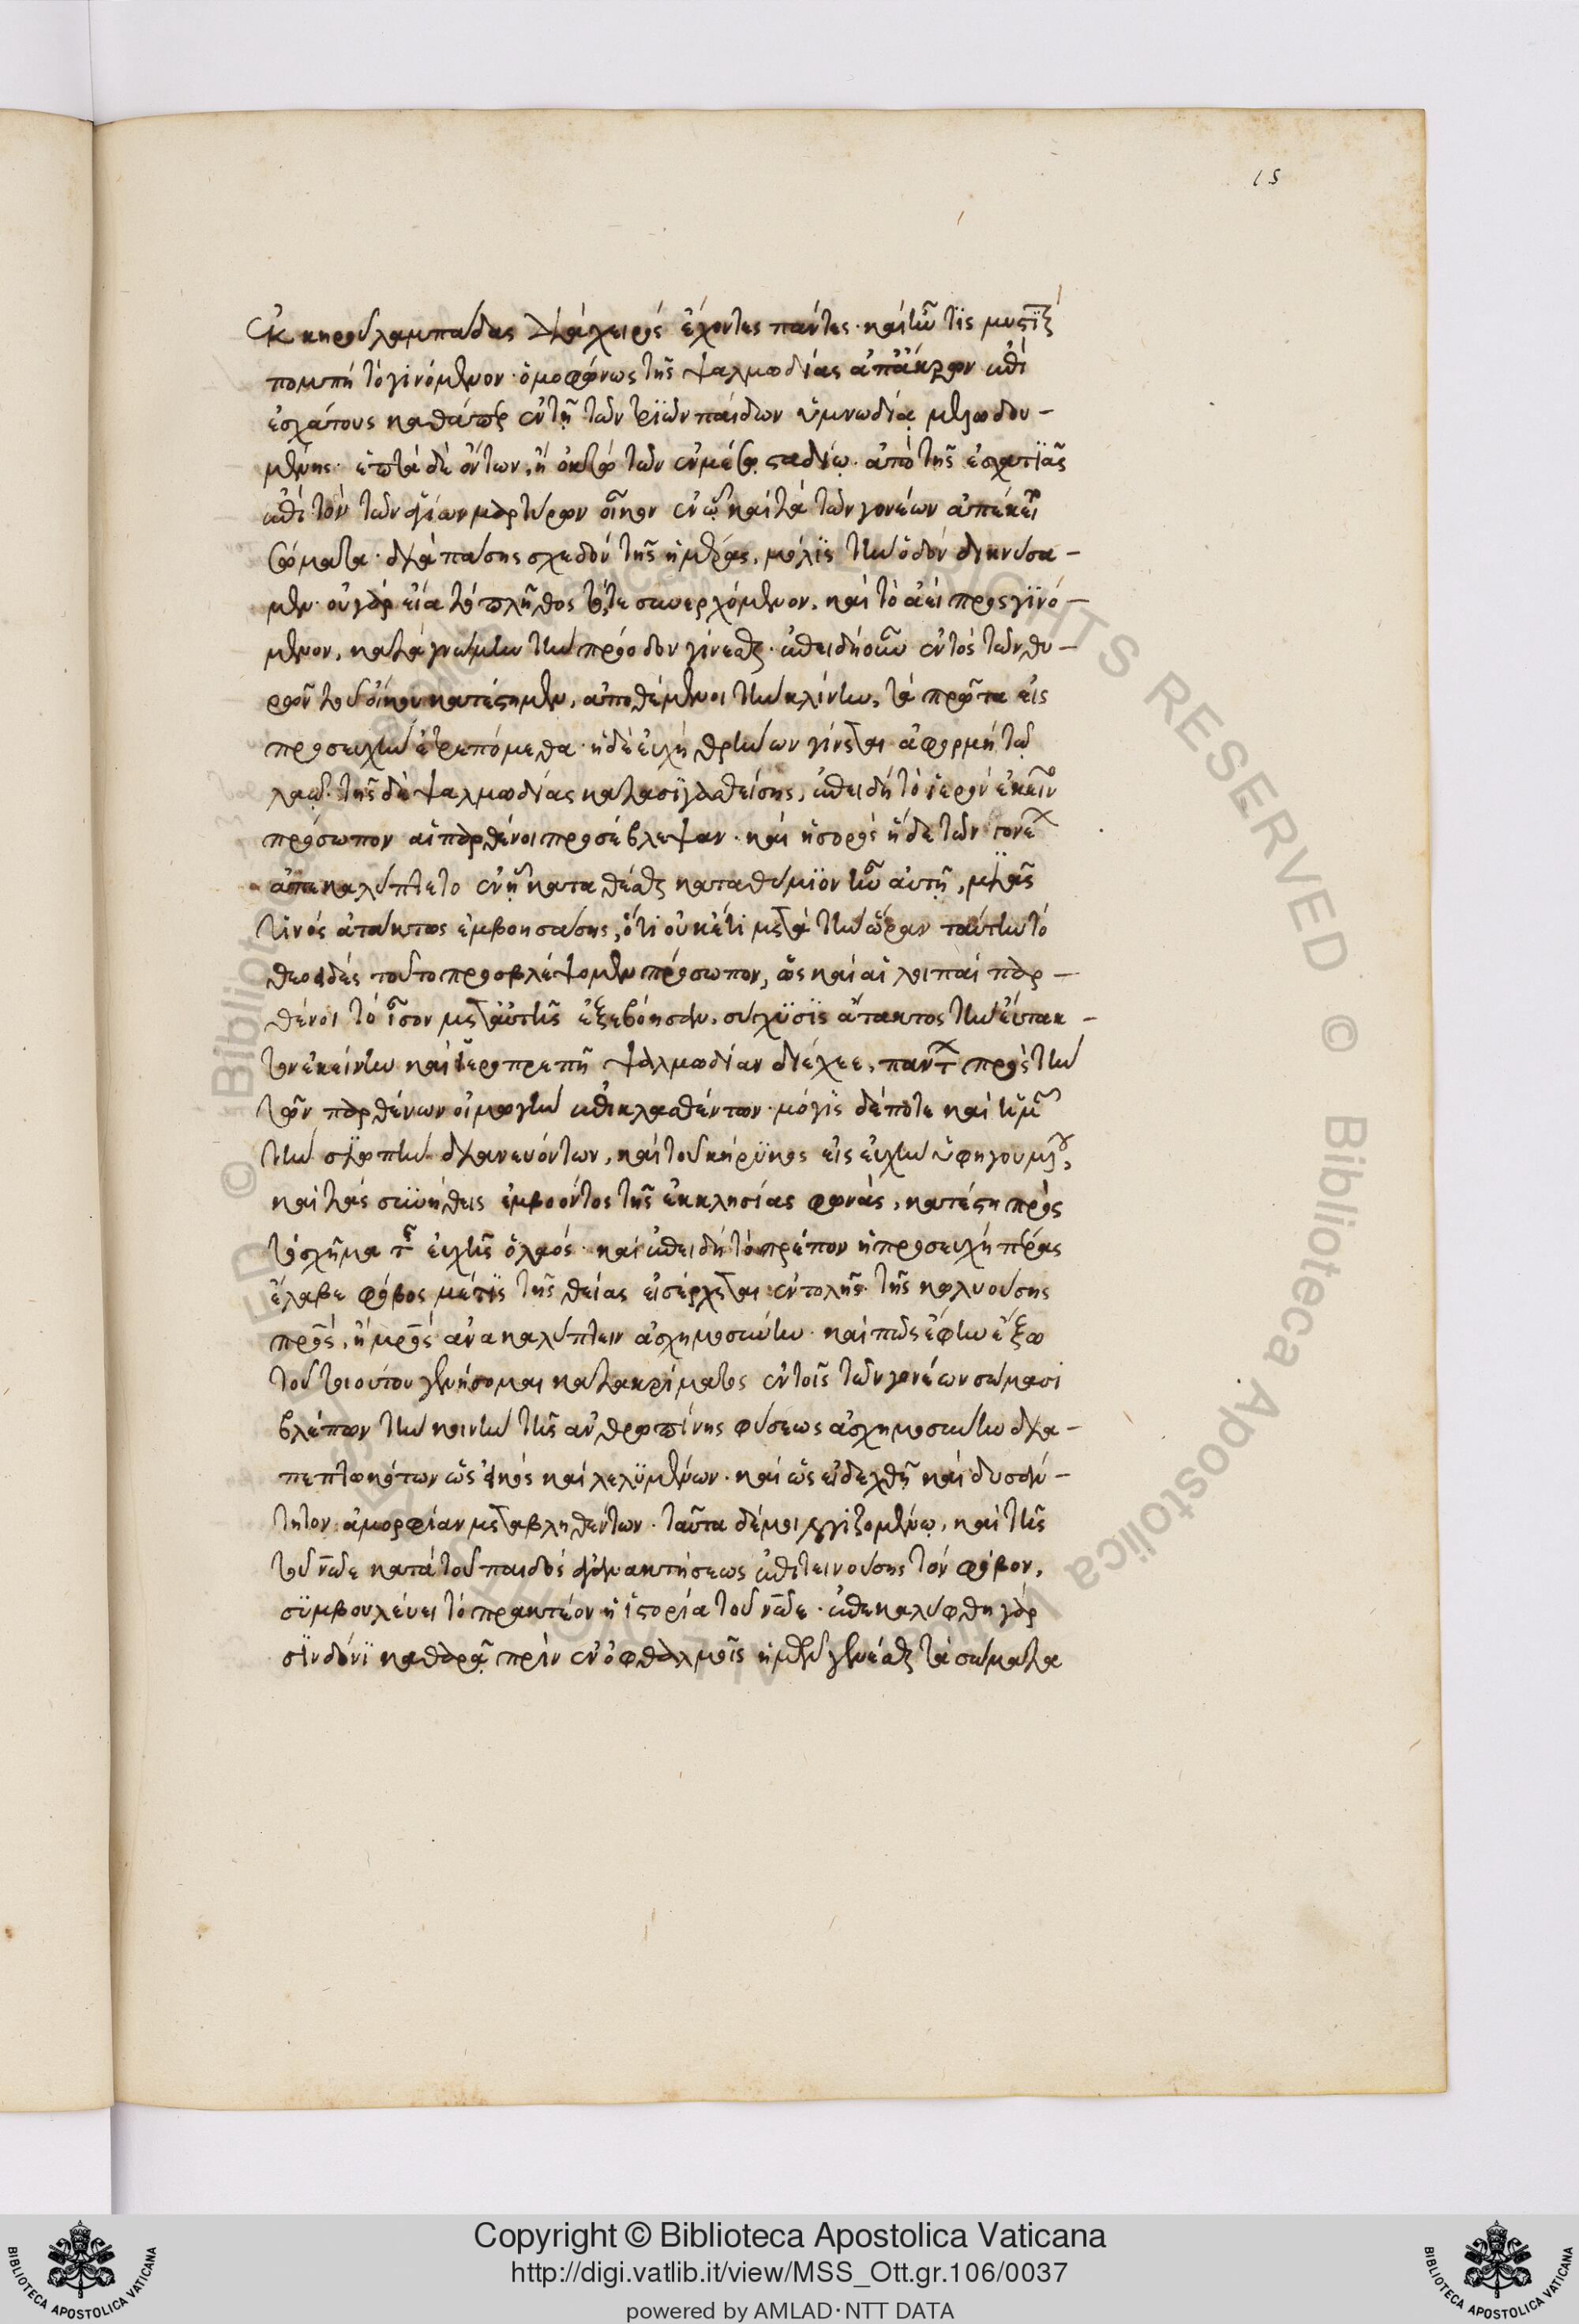 15
ἐκ κηροῦ λαμπάδας διὰ χειρὸς ἔχοντες πάντες· καὶ ἦν τις μυστικὴ
πομπὴ τὸ γινόμενον· ὁμοφώνως τῆς ψαλμωδίας ἀπ' ἄκρων ἐπὶ
ἐσχάτους καθάπερ ἐν τῇ τῶν τριῶν παίδων ὑμνωδίᾳ μελωδου-
μένης· ἑπτὰ δὲ ὄντων, ἢ ὀκτὼ τῶν ἐν μέσῳ σταδίῳ· ἀπὸ τῆς ἐσχατιᾶς
ἐπὶ τὸν τῶν ἁγίων μαρτύρων οἶκον ἐν ᾧ καὶ τὰ τῶν γονέων ἀπέκειτο
σώματα· διὰ πάσης σχεδὸν τῆς ἡμέρας, μόλις τὴν ὁδὸν διηνύσα-
μεν· οὐ γὰρ εἴα τὸ πλῆθος τό, τε συνερχόμενον, καὶ τὸ ἀεὶ προσγινό-
μενον, κατὰ γνώμην τὴν πρόοδον γίνεσθαι· ἐπειδὴ οὖν ἐντὸς τῶν θυ-
ρῶν τοῦ οἴκου κατέστημεν, ἀποθέμενοι τὴν κλίνην, τὰ πρῶτα εἰς
προσευχὴν ἐτρεπόμεθα· ἡ δὲ εὐχὴ θρήνων γίνεται ἀφορμὴ τῷ
λαῷ· τῆς δὲ ψαλμωδίας κατασιγασθείσης, ἐπειδὴ τὸ ἱερὸν ἐκεῖνο
πρόσωπον αἱ παρθένοι προσέβλεψαν· καὶ ἡ σορὸς ἤδε τῶν γονέων
ἀπεκαλύπτετο ἐν ᾗ καταθέσθαι καταθύμιον ἦν αὐτῇ, μιᾶς
τινὸς ἀτάκτως ἐμβοησάσης, ὅτι οὐκέτι μετὰ τὴν ὥραν ταύτην τὸ
θεοειδὲς τοῦτο προσβλέψομεν πρόσωπον, ὡς καὶ αἱ λοιπαὶ παρ-
θένοι τὸ ἴσον μετ' αὐτῆς ἐξεβόησαν, σύγχυσις ἄτακτος τὴν εὔτακ-
τον ἐκείνην καὶ ἱεροπρεπῆ ψαλμωδίαν διέχεε, πάντων πρὸς τὴν
τῶν παρθένων οἰμωγὴν ἐπικλασθέντων· μόγις δέποτε καὶ ἡμῶν
τὴν σιωπὴν διανευόντων, καὶ τοῦ κήρυκος εἰς εὐχὴν ὑφηγουμένου,
καὶ τὰς συνήθεις ἐμβοῶντος τῆς ἐκκλησίας φωνάς, κατέστη πρὸς
τὸ σχῆμα τῆς εὐχῆς ὁ λαός· καὶ ἐπειδὴ τὸ πρέπον ἡ προσευχὴ πέρας
ἔλαβε φόβος μέ τις τῆς θείας εἰσέρχεται ἐντολῆς· τῆς κωλυούσης
πατρὸς, ἢ μητρὸς ἀνακαλύπτειν ἀσχημοσύνην· καὶ πῶς ἔφην ἔξω
τοῦ τοιούτου γενήσομαι κατακρίματος ἐν τοῖς τῶν γονέων σώμασι
βλέπων τὴν κοινὴν τῆς ἀνθρωπίνης φύσεως ἀσχημοσύνην δια-
πεπτωκότων ὡς εἰκὸς καὶ λελυμένων· καὶ ὡς εἰδεχθῆ καὶ δυσάν-
τητον ἀμορφίαν μεταβληθέντων· ταῦτα δέ μοι λογιζομένῳ, καὶ τῆς
τοῦ νῶε κατὰ τοῦ παιδὸς ἀγανακτήσεως ἐπιτεινούσης τὸν φόβον,
συμβουλεύει τὸ πρακτέον ἡ ἱστορία τοῦ νῶε· ἐπεκαλύφθη γὰρ
σινδόνι καθαρᾷ πρὶν ἐν ὀφθαλμοῖς ἡμῶν γενέσθαι τὰ σώματα
© Biblioteca Apostolica Vaticana
ALL RIGHTS RESERVED
Copyright © Biblioteca Apostolica Vaticana
http://digi.vatlib.it/view/MSS_Ott.gr.106/0037
powered by AMLAD·NTT DATA
BIBLIOTECA APOSTOLICA VATICANA
BIBLIOTECA APOSTOLICA VATICANA